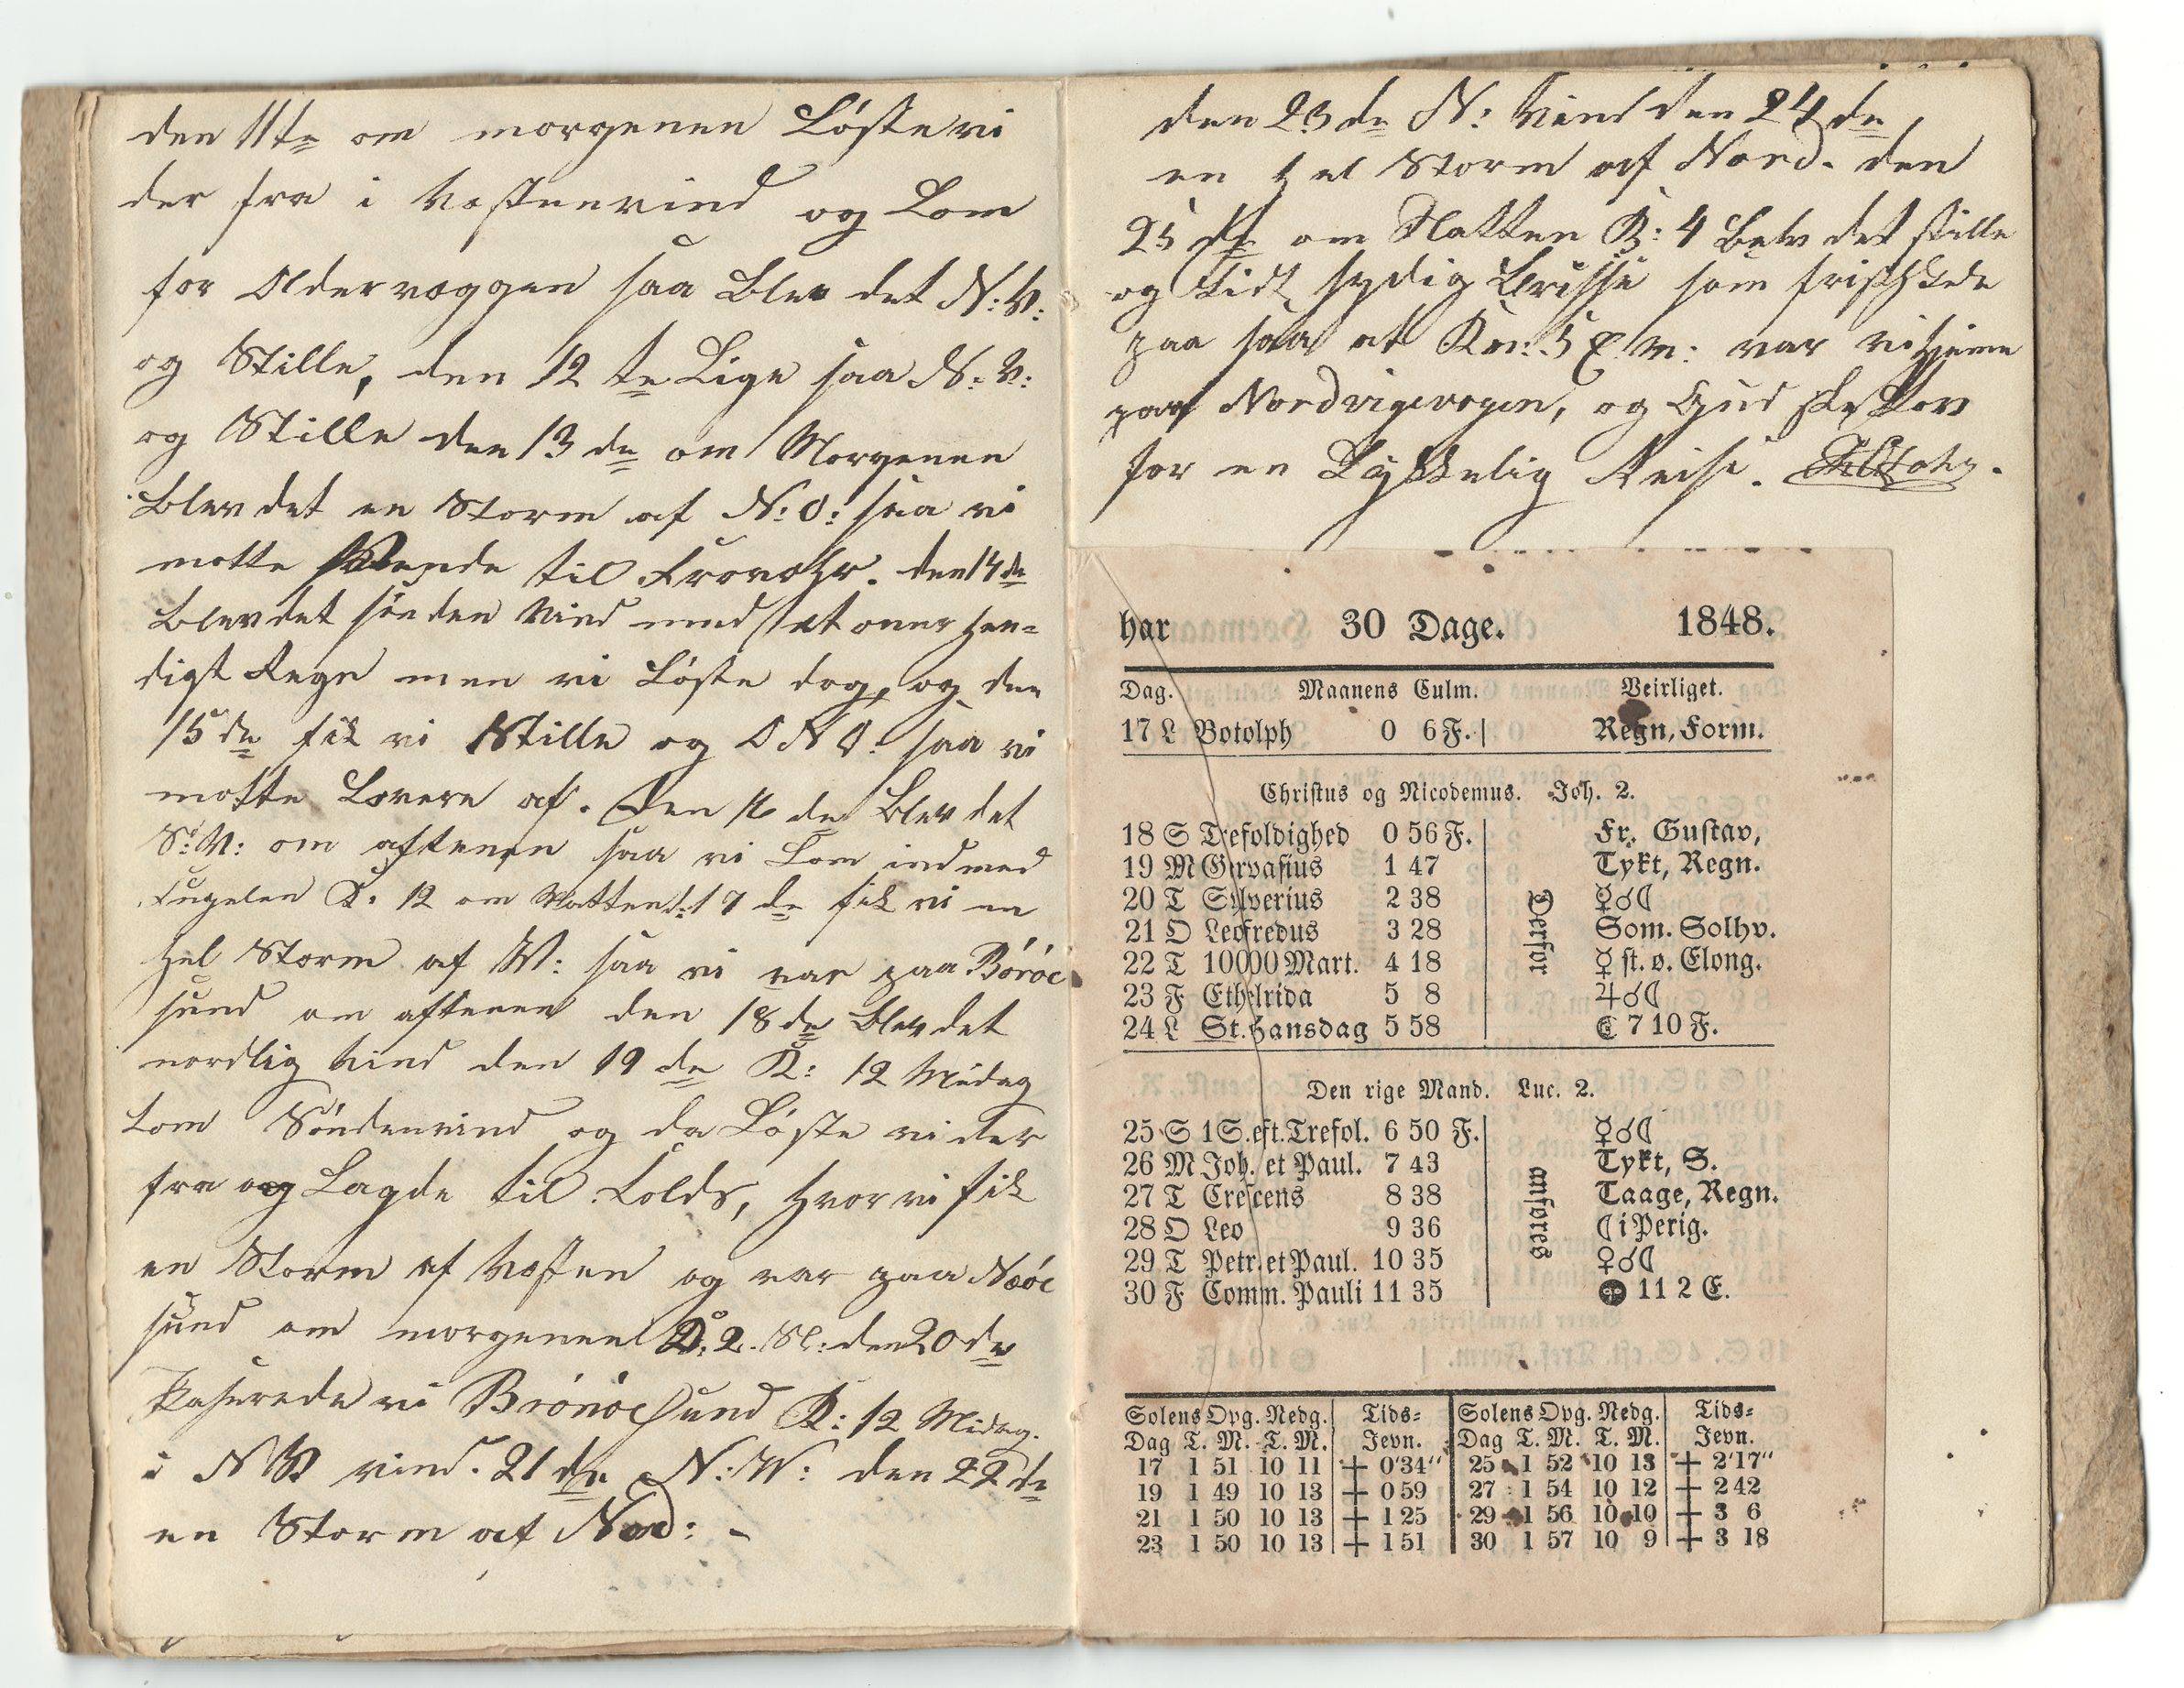 den 11te om morgenen Løste vi
der fra i Vestenvind og kom
for Oldervaggen saa Blev det N:V:
og Stille, den 12te Lige saa N:V:
og Stille den 13de om Morgenen
Blev det en Storm af N:O: saa vi
motte Vende til den 14de
Blev det sønden Vind med et over hen-
digt Regn men vi Løste dog, og den
15de fik vi Stille og ONO: saa vi
motte Lovere af. Den 16de Blev det
S:V: om aftenen saa vi kom ind med
K: 12 om Natten d: 17de fik vi en
hel Storm af W: saa vi var paa
sund om aftenen den 18de Blev det
nordlig Vind den 19de K: 12 Midag
kom Søndenvind og da Løste vi der
fra og Lagde til hvor vi fik
en Storm af Vesten og var paa
sund om morgenen 2. den 20de
Paserede vi Brønøe Sund K: 12 Midag.
i NW vind. 21de N:W: den 22de
en Storm af Nord: -
den 23de N: Vind den 24de
en hel Storm af Nord. den
25de om Natten K: 4 Belv det stille
og Lidt sydlig Brisse som friskede
paa saa at K: 5 E.m: var vi hjeme
paa Nordvigevagen, og Gud ske Lov
for en Lykkelig Reise.
har 30 Dage. 1848.
Dag. Maanens Culm. Veirliget.
17 L Botolph 0 6 F. Regn, Form.
Christus og Nicodemus. Joh. 2.
18 S Trefoldighed 0 56 F. Fr. Gustav,
19 M Gervasius 1 47 Tykt, Regn.
20 T Silverius 2 38 ☿☌☾
21 O Leofredus 3 28 Som. Solhv.
22 T 10000 Mart. 4 18 ☿ st. ø. Elong.
23 F Ethelrida 5 8 ♃☌☾
24 L St. Hansdag 5 58 ☾ 7 10 F.
Derfor
Den rige Mand. Luc. 2.
25 S 1 S. eft. Trefol. 6 50 F. ☿☌☾
26 M Joh. et Paul. 7 43 Tykt, S.
27 T Crescens 8 38 Taage, Regn.
28 O Leo 9 36 ☾ i Perig.
29 T Petr. et Paul. 10 35 ♀☌☾
30 F Comm. Pauli 11 35 ● 11 2 E.
anføres
Solens Opg. Nedg. Tids= Solens Opg. Nedg. Tids=
Dag T. M. T. M. Jevn. Dag T. M. T. M. Jevn.
17 1 51 10 11 + 0'34" 25 1 52 10 13 + 2'17"
19 1 49 10 13 + 0 59 27 1 54 10 12 + 2 42
21 1 50 10 13 + 1 25 29 1 56 10 10 + 3 6
23 1 50 10 13 + 1 51 30 1 57 10 9 + 3 18